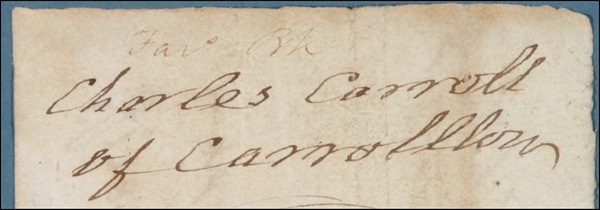 Charles Carroll
of Carrollton